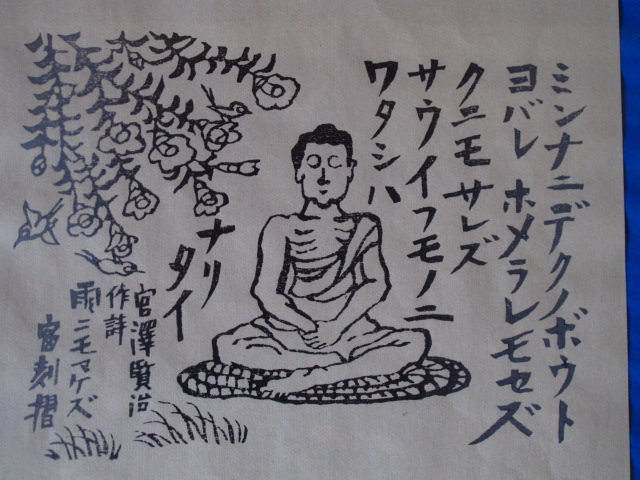 ミンナニデクノボウト
ヨバレ ホメラレモセズ
クニモサレズ
サウイフモノニ
ワタシハ
ナリ
タイ
宮澤賢治
作詩
雨ニモマケズ
富刻摺